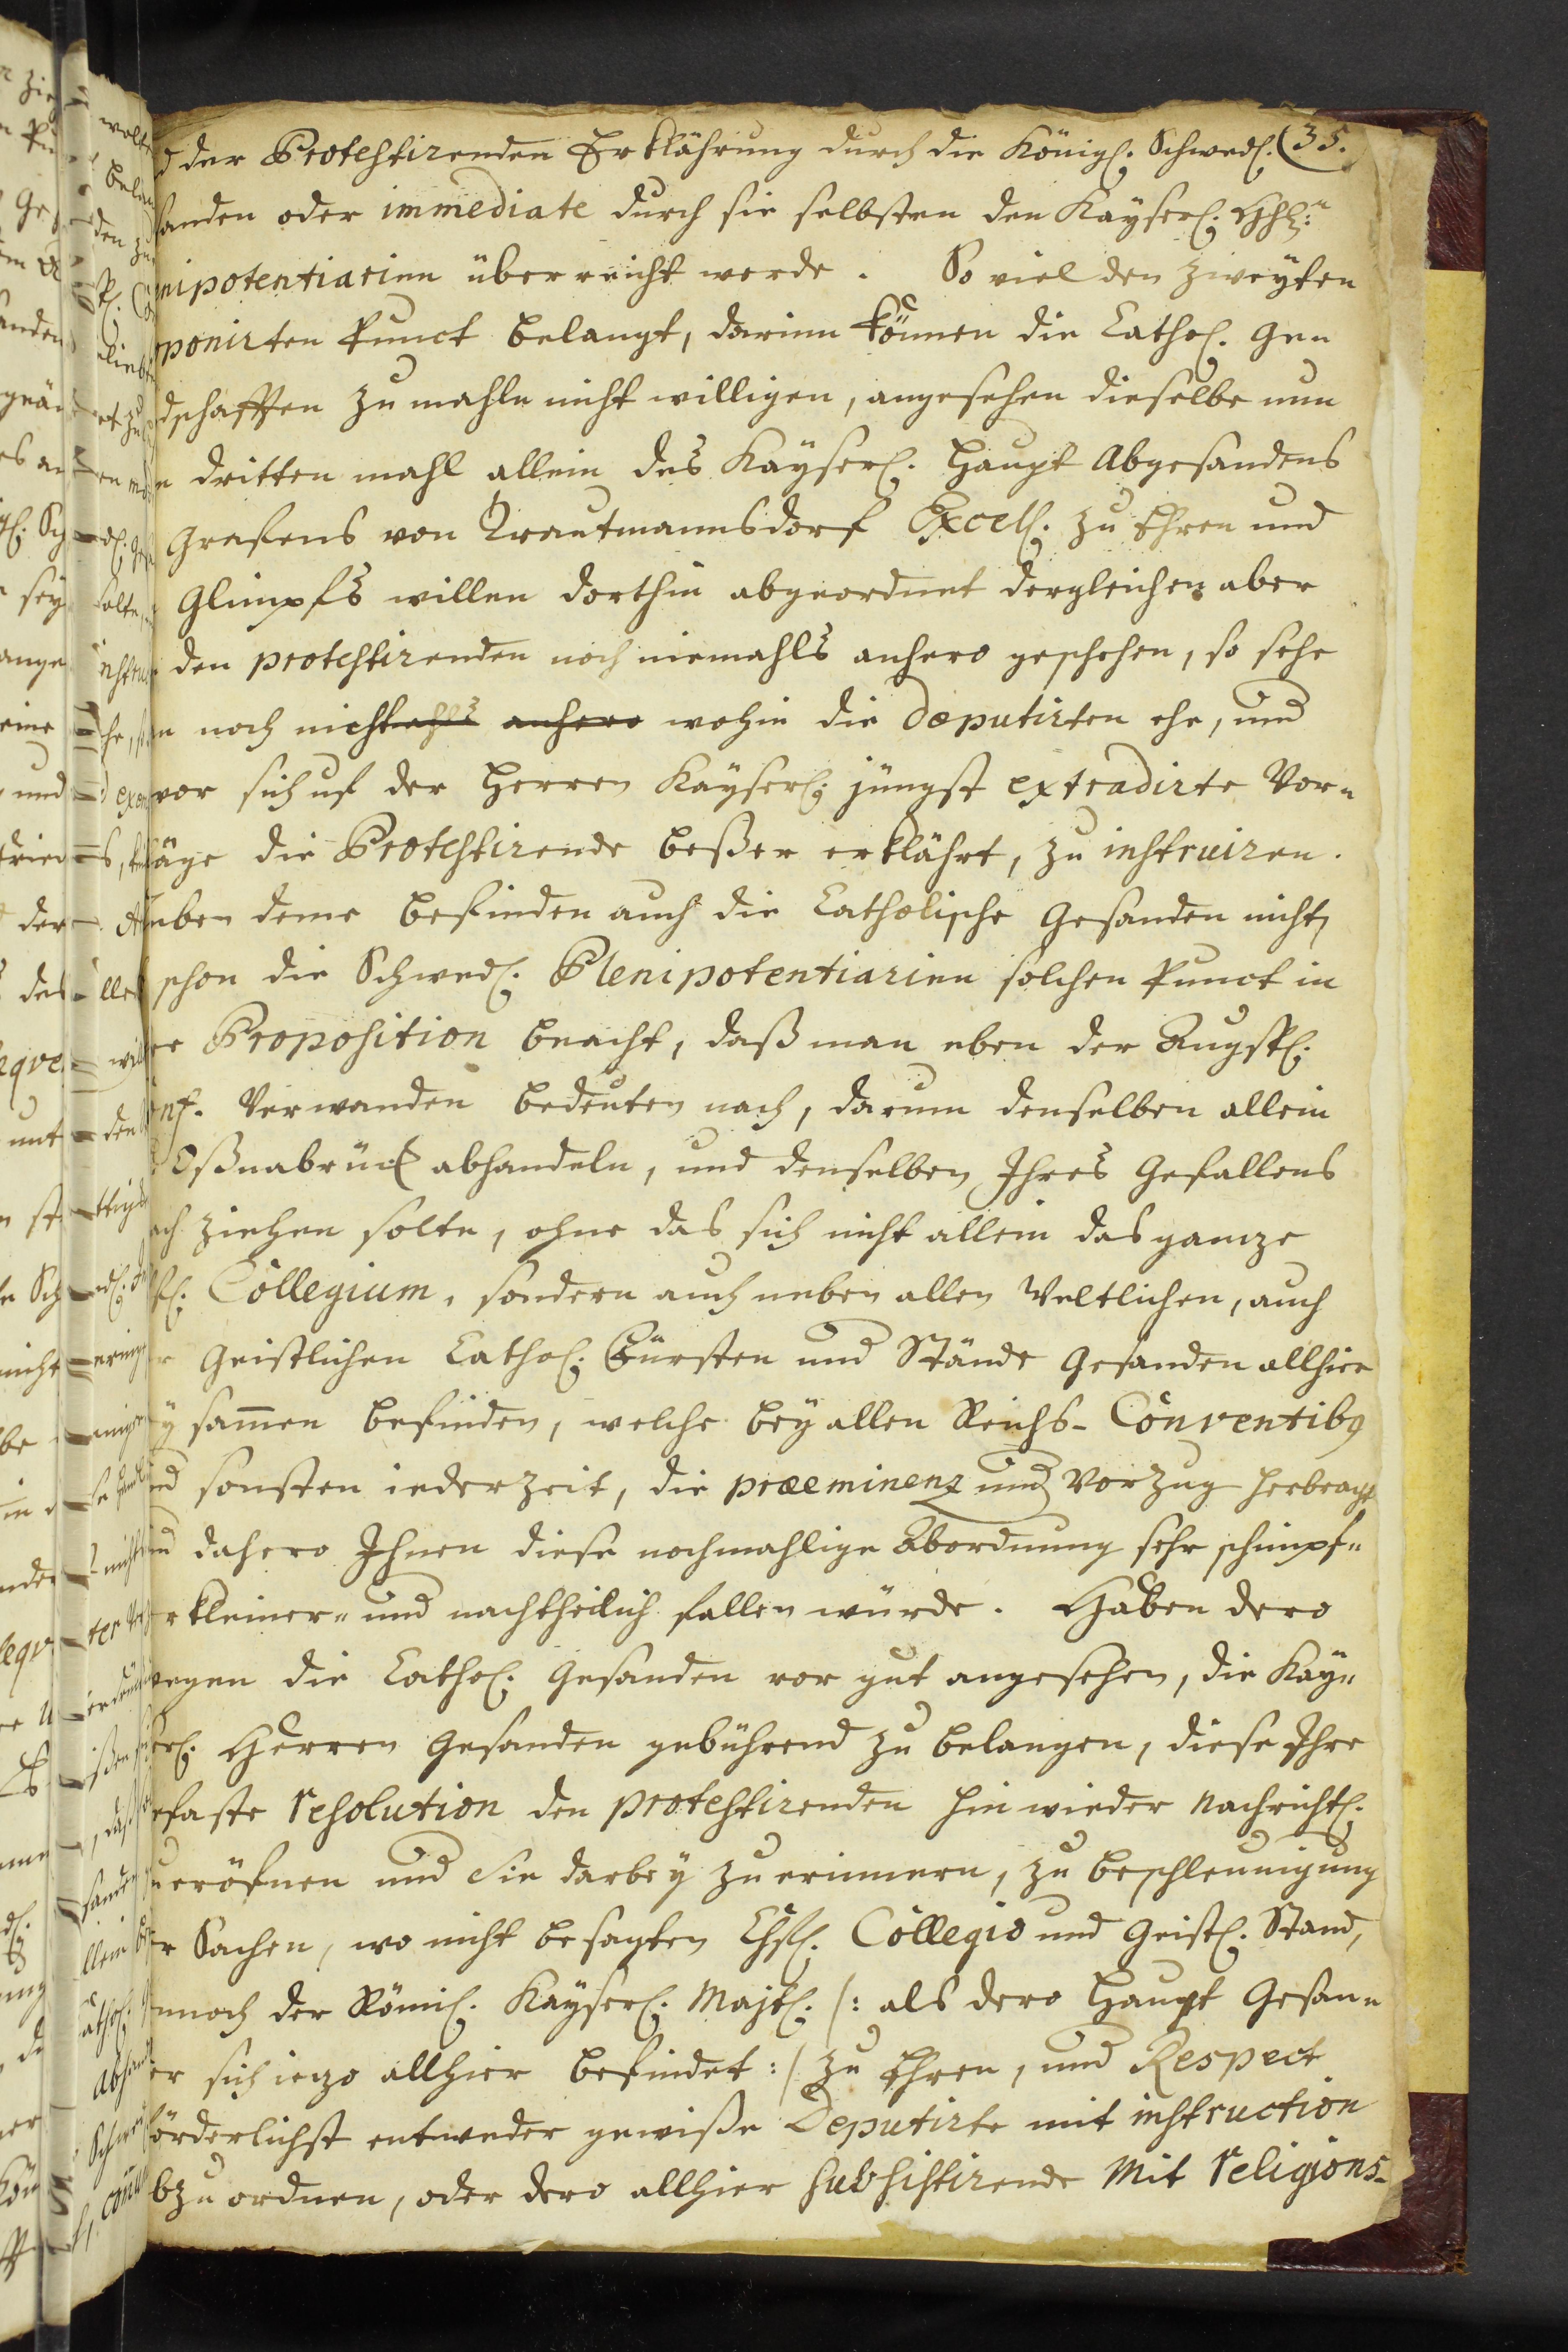 d der Protestirenden Erklährung durch die Königl. Schwed. (35.
sanden oder immediate durch sie selbsten den Kayserl. HHl:n
nipotentiarien überreicht werde. So viel den Zweyten
ponirten Punct belangt, darinn können die Cathol. Ge-
dschafften zumahln nicht willigen, angesehen dieselbe nun
n dritten mahl allein des Kayserl. Haupt Abgesandens
Grafens von Trautmannsdorf Excell. zu Ehren und
Glimpfs willen dorthin abgeordnet dergleichen aber
den protestirenden noch niemahls anhero geschehen, so sehe
n noch nicht anhero wohin die Deputirten ehe, und
vor sich uf der Herren Kayserl. jüngst extradirte Vor-
läge die Protestirende beßer erklährt, zu instruiren.
eben deme befinden auch die Catholische Gesanden nicht,
schon die Schwed. Plenipotentiarien solchen Punct in
re Proposition bracht, daß man eben der Augsp.
onf. Verwanden bedeuten nach, darum denselben allein
Oßnabrück abhandeln, und denselben Ihres Gefallens
ach ziehen solte, ohne das sich nicht allein das ganze
fl. Collegium, sondern auch neben allen Weltlichen, auch
r Geistlichen Cathol. Fürsten und Stände Gesanden allhier
y sam̅en befinden, welche bey allen Reichs-Conventibꝰ
nd sonsten iederzeit, die præeminenz und Vorzug herbragt
nd dahero Ihnen diese nochmahlige Abordnung sehr schimpf-
rkleiner- und nachtheilich fallen würde. Haben dero
wegen die Cathol. Gesanden vor gut angesehen, die Kay-
serl. Herren Gesanden gebührend zu belangen, diese Ihre
efaste resolution den protestirenden hinwieder nachrichtl.
zu eröfnen und Sie darbey zu erinnern, zu beschleunigung
er Sachen, wo nicht besagten Chfl. Collegio und Geistl. Stand,
nnoch der Römil. Kayserl. Majt. /: als dero Haupt Gesan-
er sich iezo allhier befindet :/ zu Ehren, und Respect
förderlichst entweder gewiße Deputirte mit instruction
bzuordnen, oder dero allhier subsistirende Mit religions-